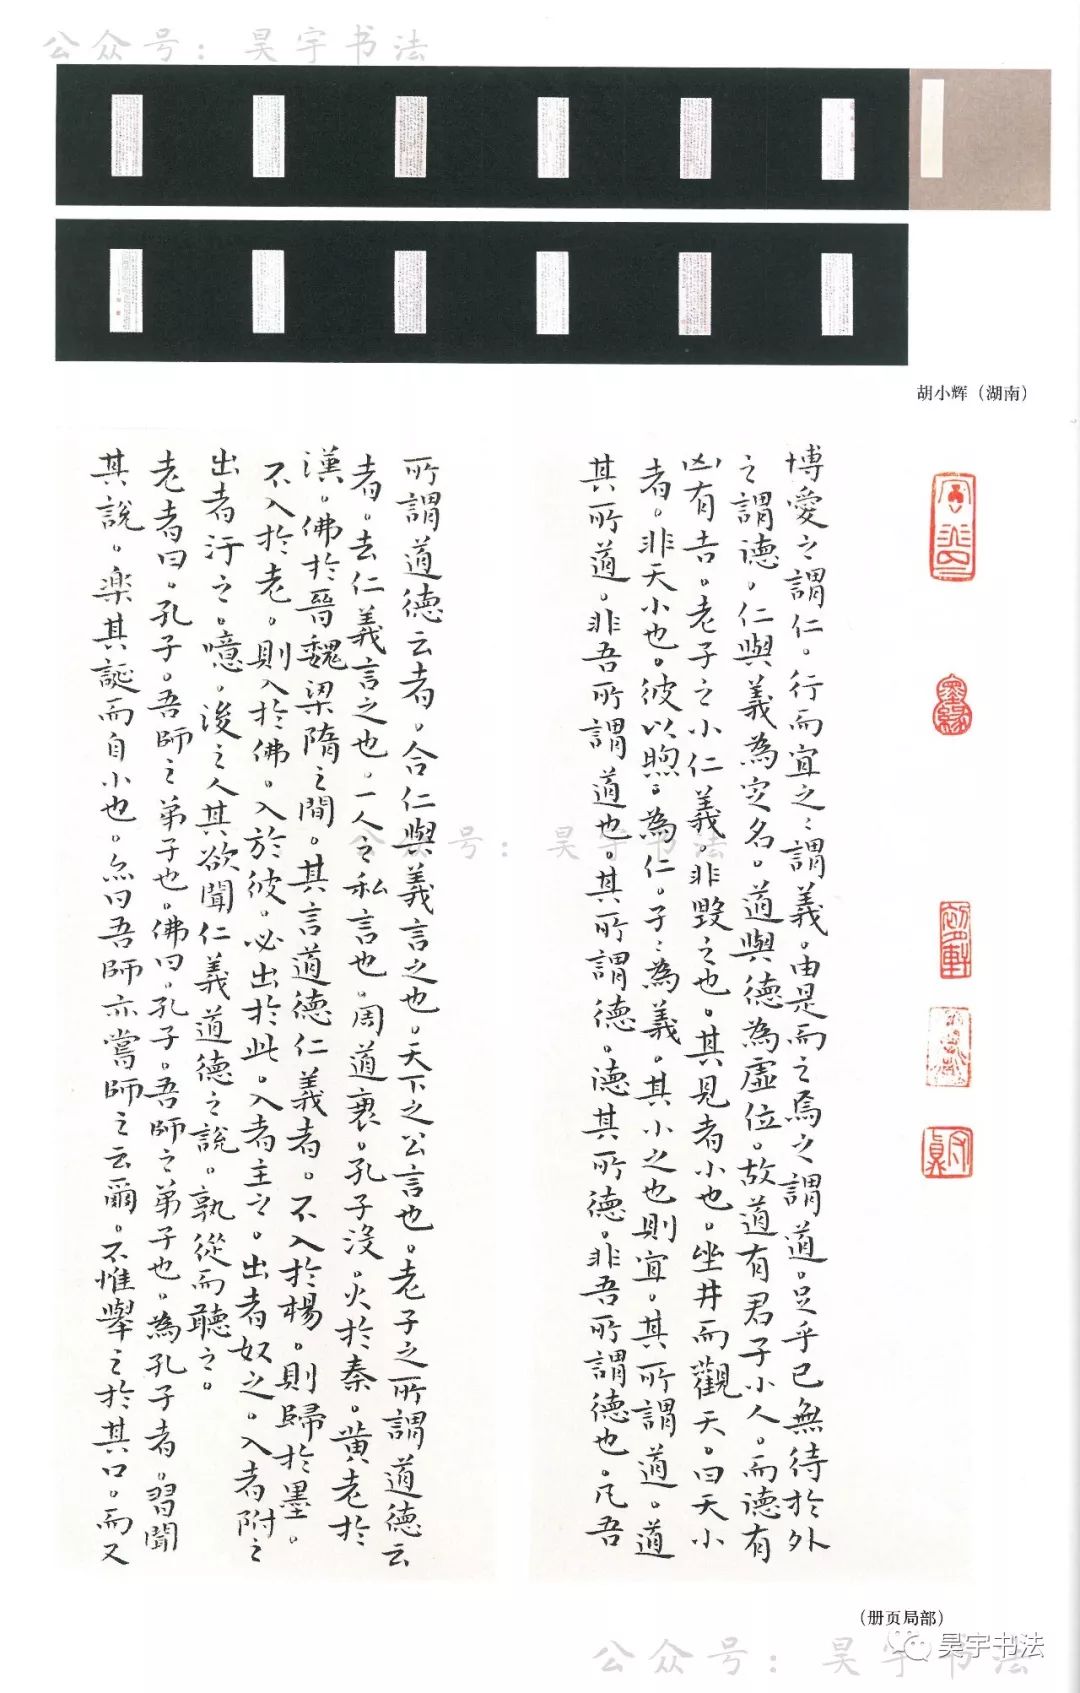 公众号：昊宇书法
胡小辉（湖南）
博愛之謂仁。行而宜之〻謂義。由是而之焉之謂道。足乎已無待於外
之謂德。仁與義為定名。道與德為虛位。故道有君子小人。而德有
凶有吉。老子之小仁義。非毀之也。其見者小也。坐井而觀天。曰天小
者。非天小也。彼以煦〻為仁。孑〻為義。其小之也則宜。其所謂道。道
其所道。非吾所謂道也。其所謂德。德其所德。非吾所謂德也。凡吾
所謂道德云者。合仁與義言之也。天下之公言也。老子之所謂道德云
者。去仁義言之也。一人之私言也。周道衰。孔子沒。火於秦。黃老於
漢。佛於晉魏梁隋之間。其言道德仁義者。不入於楊。則歸於墨。
不入於老。則入於佛。入於彼。必出於此。入者主之。出者奴之。入者附之
出者汙之。噫。後之人其欲聞仁義道德之說。孰從而聽之。
老者曰。孔子。吾師之弟子也。佛曰。孔子。吾師之弟子也。為孔子者。習聞
其說。樂其誕而自小也。亦曰吾師亦嘗師之云爾。不惟舉之於其口。而又
公众号：昊宇书法
（册页局部）
昊宇书法
公众号：昊宇书法